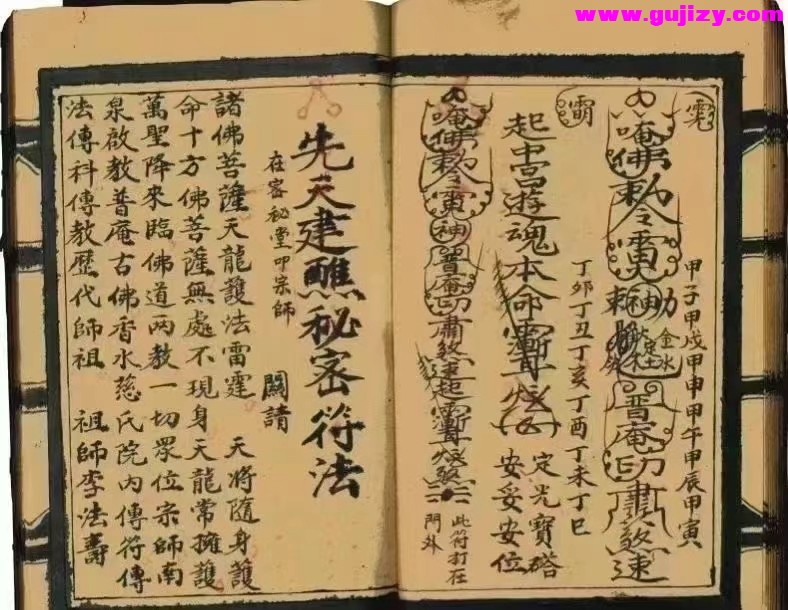 www.gujizy.com
甲子甲戌甲申甲午甲辰甲寅
唵佛勅令 神
金水
普庵
速
丁卯丁丑丁亥丁酉丁未丁巳
起 宮遊魂本命
定光寶塔
安妥安位
唵佛勅令 神普庵
此符打在
門外
先天建醮秘密符法
在密秘堂叩宗師 關請
諸佛菩薩天龍護法雷霆 天將隨身護
命十方佛菩薩無處不現身天龍常擁護
萬聖降來臨佛道两教一切眾位宗師南
泉啟教普庵古佛香水慈氏院内傳符傳
法傳科傳教歷代師祖 祖師李法壽